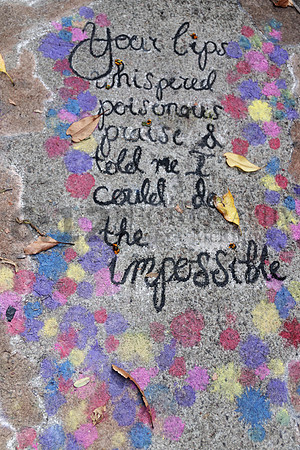 Your lips
whispered
poisonous
praise &
told me I
could do
the
impossible